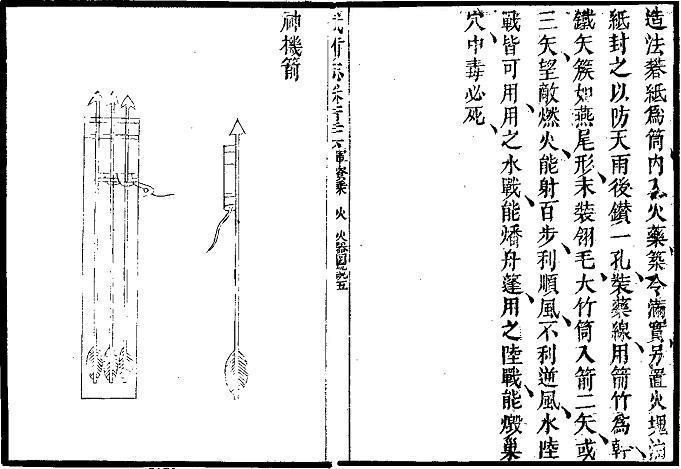 造法礬紙為筒內入火藥築令滿實另置火塊油
紙封之以防天雨後鑽一孔裝藥線用箭竹為幹
鐵矢簇如燕尾形末裝翎毛大竹筒入箭二矢或
三矢望敵燃火能射百步利順風不利逆風水陸
戰皆可用用之水戰能燔舟篷用之陸戰能燬巢
穴中毒必死
武備志卷 軍資乘 火 火器圖說五
神機箭